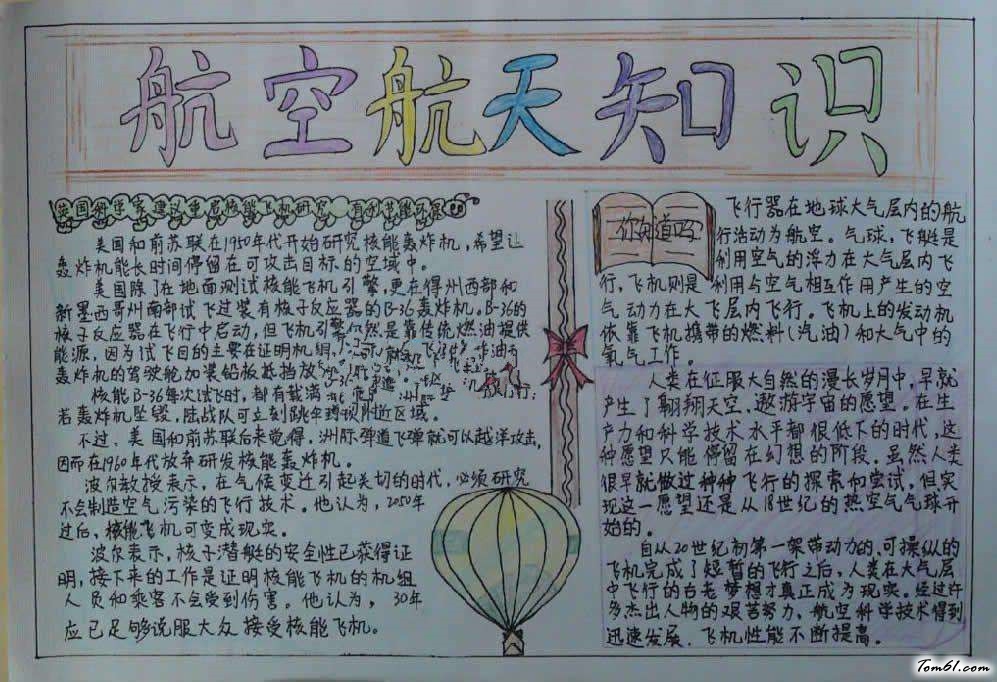 航空航天知识
英国科学家建议重启核能飞机研究 有利节能环保
美国和前苏联在1950年代开始研究核能轰炸机,希望让
轰炸机能长时间停留在可攻击目标的空域中。
美国除了在地面测试核能飞机引擎,更在得州西部和
新墨西哥州南部试飞过装有核子反应器的B-36轰炸机。B-36的
核子反应器在飞行中启动,但飞机引擎仍然是靠传统燃油提供
能源,因为试飞目的主要在证明机组
轰炸机的驾驶舱加装铅板抵挡放
核能B-36每次试飞时,都有载满
若轰炸机坠毁,陆战队可立刻跳伞 附近区域。
不过、美国和前苏联后来觉得,洲际弹道飞弹就可以越洋攻击,
因而在1960年代放弃研发核能轰炸机。
波尔教授表示,在气候变迁引起关切的时代,必须研究
不会制造空气污染的飞行技术。他认为,2050年
过后,核能飞机可变成现实。
波尔表示,核子潜艇的安全性已获得证
明,接下来的工作是证明核能飞机的机组
人员和乘客不会受到伤害。他认为,30年
应已足够说服大众接受核能飞机。
你知道吗?
飞行器在地球大气层内的航
行活动为航空。气球,飞艇是
利用空气的浮力在大气层内飞
行,飞机则是利用与空气相互作用产生的空
气动力在大飞层内飞行。飞机上的发动机
依靠飞机携带的燃料(汽油)和大气中的
氧气工作。
人类在征服大自然的漫长岁月中,早就
产生了翱翔天空、遨游宇宙的愿望。在生
产力和科学技术水平都很低下的时代,这
种愿望只能停留在幻想的阶段。虽然人类
很早就做过种种飞行的探索和尝试,但实
现这一愿望还是从18世纪的热空气气球开
始的。
自从20世纪初第一架带动力的、可操纵的
飞机完成了短暂的飞行之后,人类在大气层
中飞行的古老梦想才真正成为现实。经过许
多杰出人物的艰苦努力、航空科学技术得到
迅速发展、飞机性能不断提高。
Tom61.com